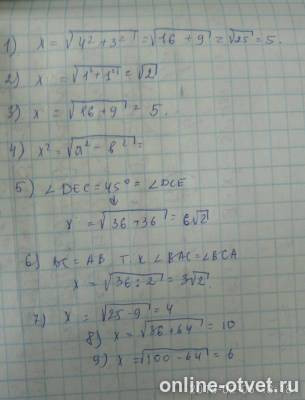 1) x = √4² + 3² = √16 + 9 = √25 = 5.
2) x = √1² + 1² = √2
3) x = √16 + 9 = 5.
4) x² = √a² - b² =
5) ∠DEC = 45° = ∠DCE
x = √36 + 36 = 6√2
6) BC = AB т.к ∠BAC = ∠BCA
x = √36 : 2 = 3√2.
7) x = √25 - 9 = 4
8) x = √36 + 64 = 10
9) x = √100 - 64 = 6
online-otvet.ru